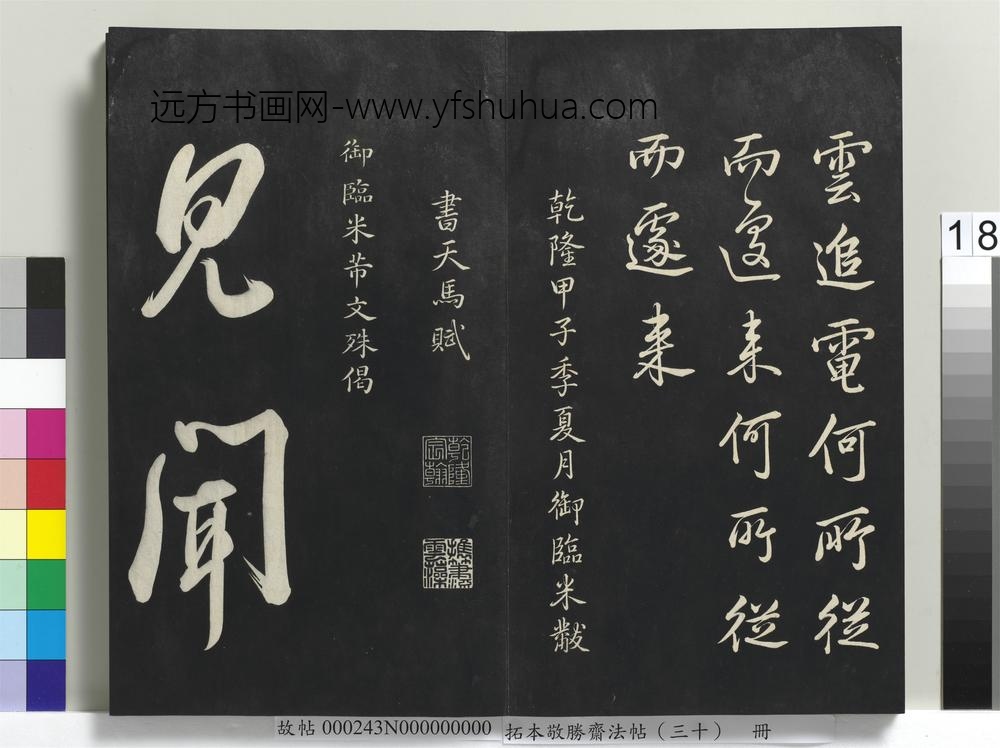 远方书画网-www.yfshuhua.com
雲追電何所従
而来何所従
而遽来
乾隆甲子季夏月御臨米黻
書天馬賦
乾隆
宸翰
御臨米芾文殊偈
見聞
18
故帖 000243N000000000 拓本敬勝齋法帖（三十） 冊